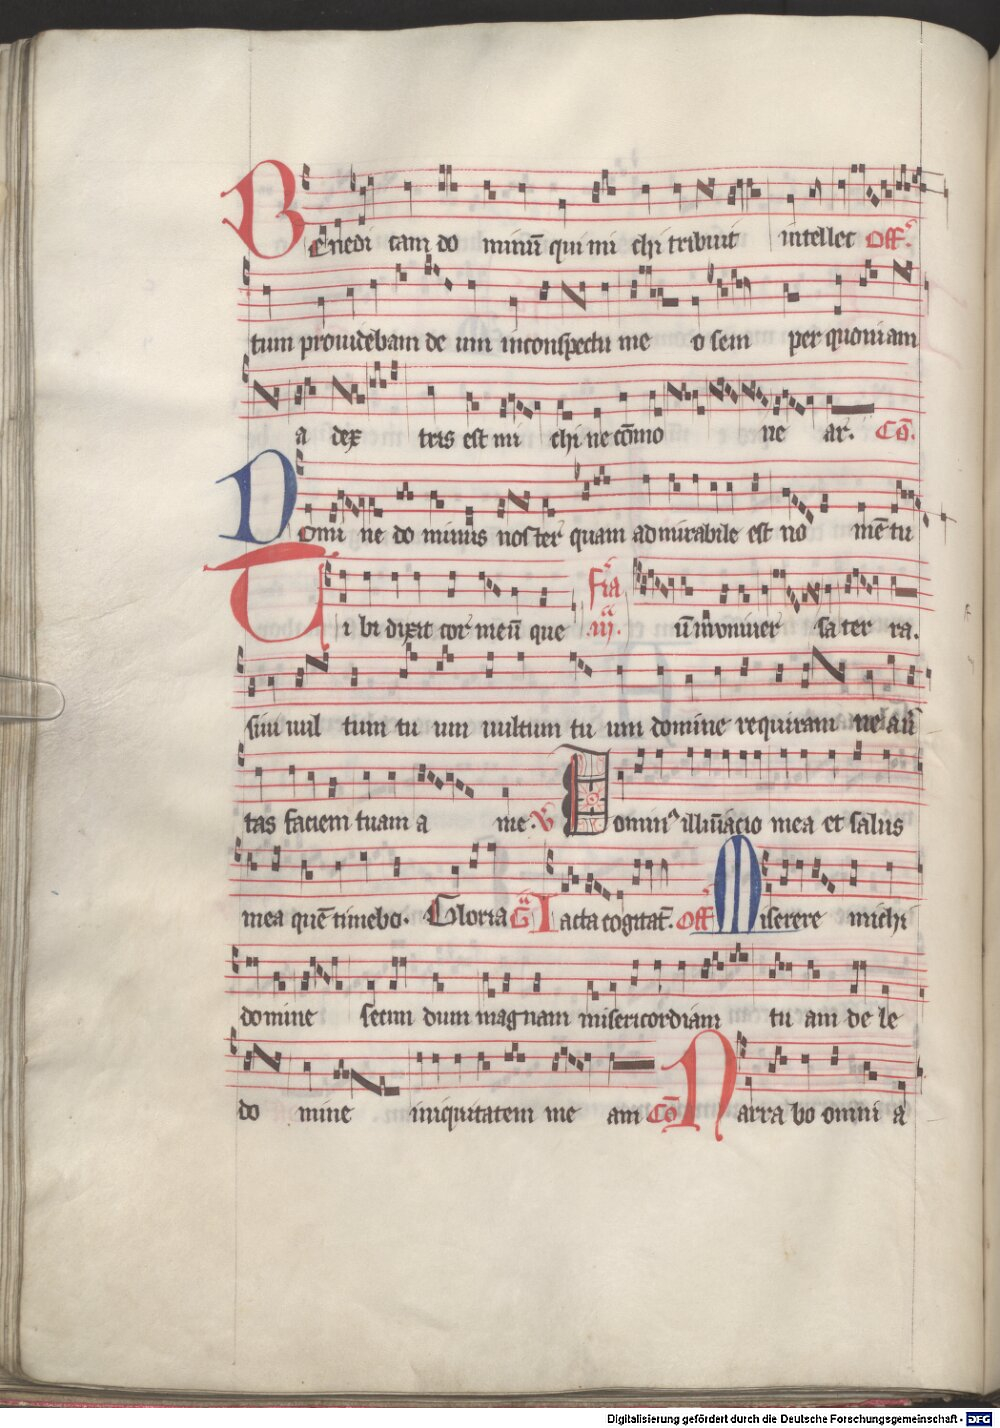 Benedi cam do minū qui mi chi tribuit intellec Off̄.
tum prouidebam de um inconspectu me o sem per quoniam
a dex tris est mi chi ne cōmo ne ar. Cō.
Domi ne do minus noster quam admirabile est no mē tu
Tibi dixit cor meū que fr̄ia .iij. ū in vniuer sa ter ra.
siui uul tum tu um uultum tu um domine requiram ne au
tas faciem tuam a me. V Domin⁹ illūiacio mea et salus
mea quē timebo. Gloria Gr̄ Iacta cogitat̄. Off̄ Miserere michi
domine secun dum magnam misericordiam tu am de le
do mine iniquitatem me am Cō Narra bo omni a
Digitalisierung gefördert durch die Deutsche Forschungsgemeinschaft - DFG